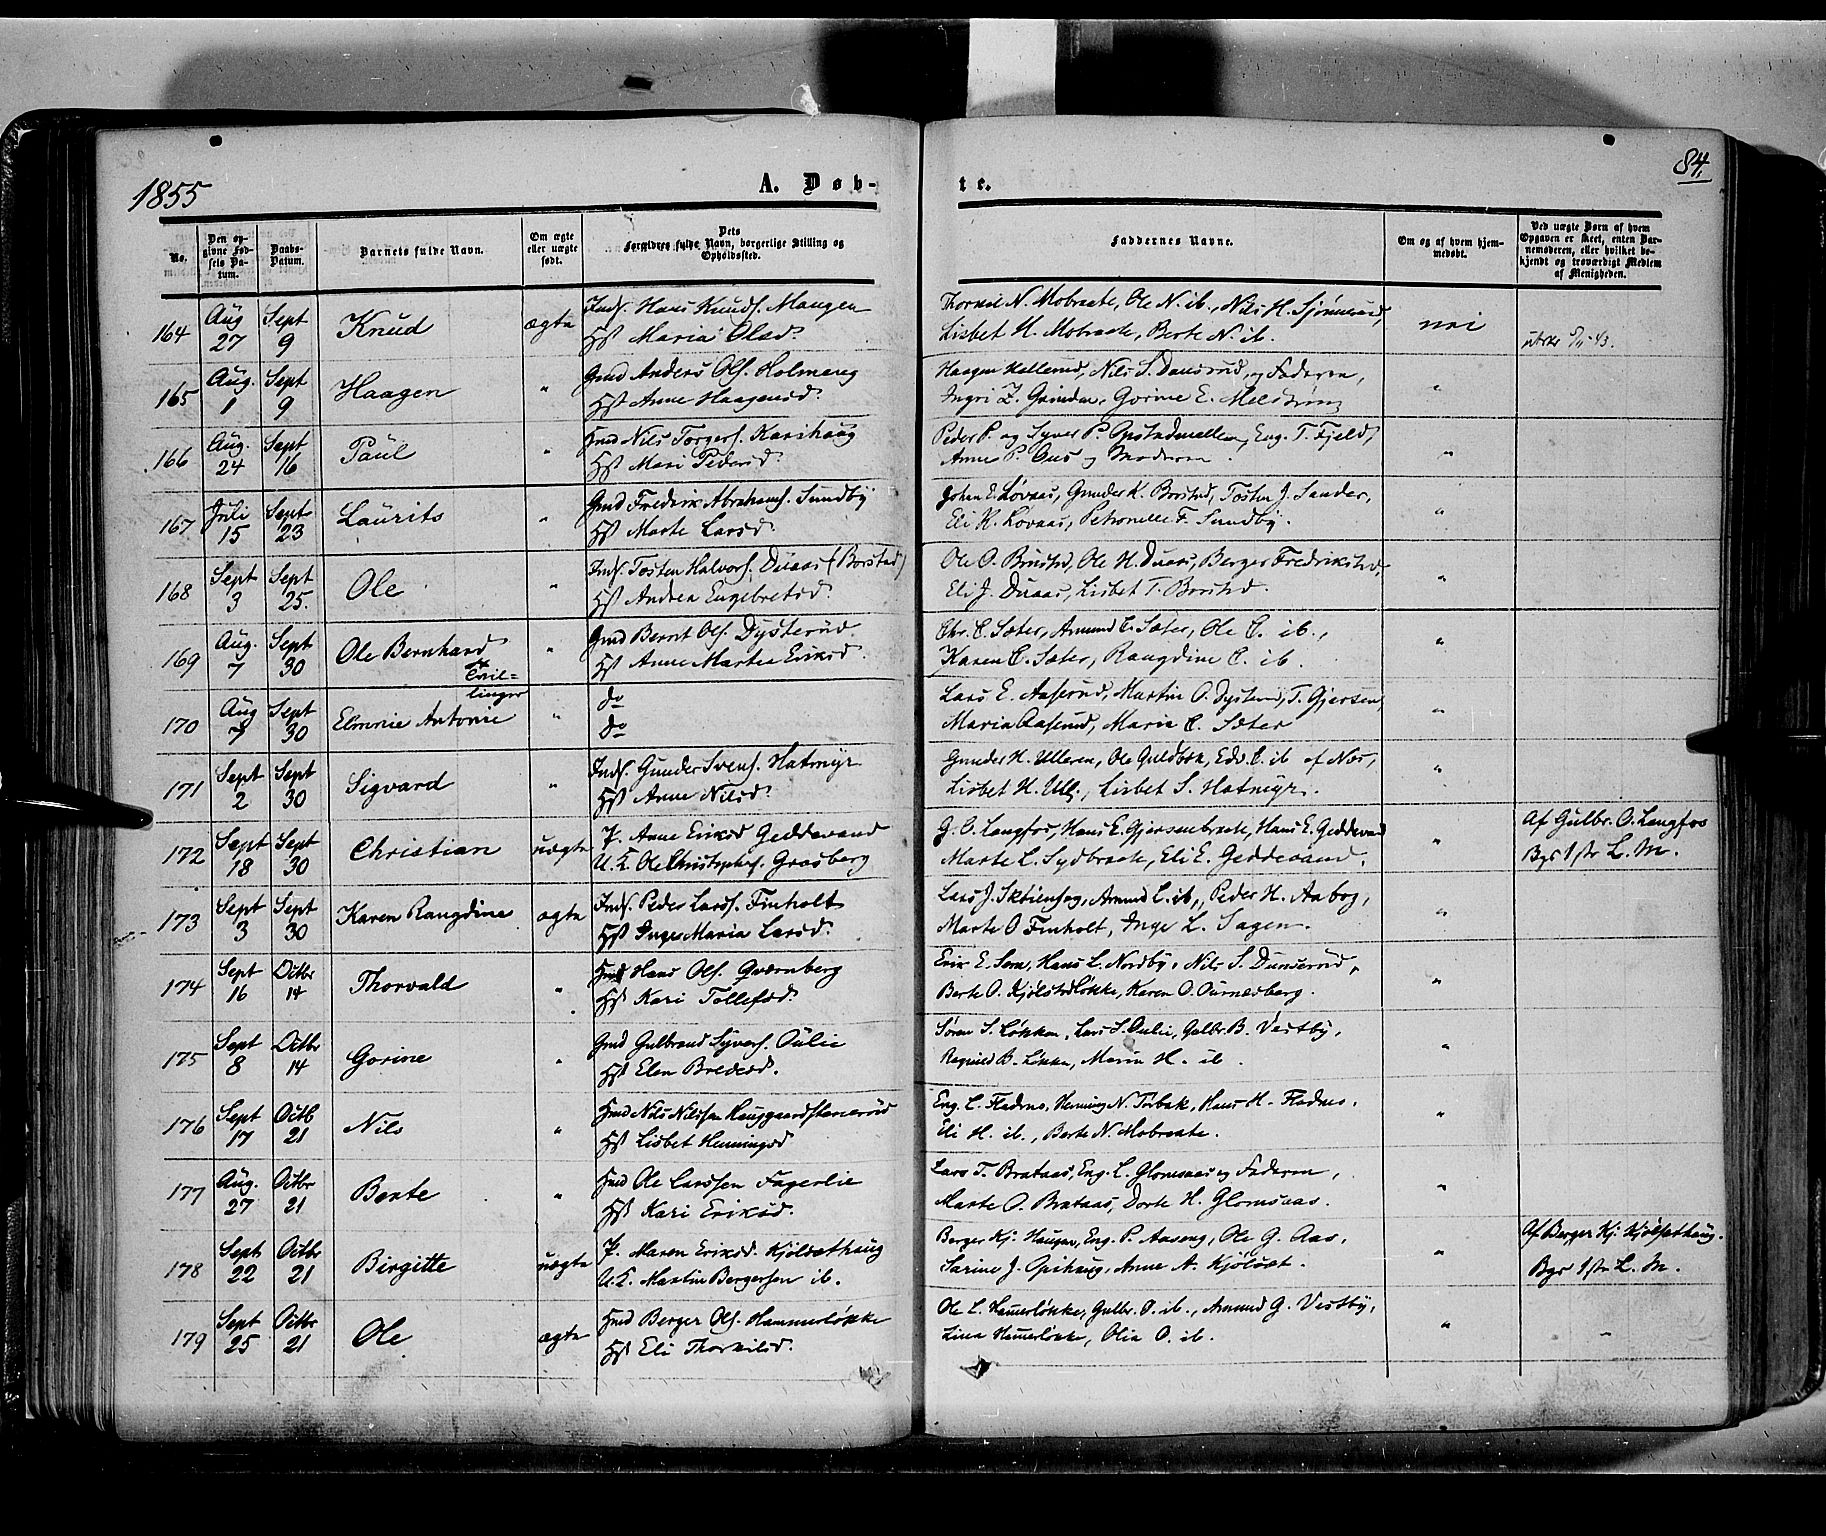 1855
A. Døb-
te.
84.
No.
Den op-
givne Fød-
sels Da-
tum.
Daabs-
Datum.
Barnets fulde Navn.
Om ægte
eller uægte
født.
Dets
Forældres fulde Navn, borgerlige Stilling og
Opholdssted.
Faddernes Navne.
Om og af hvem hjem-
medøbt.
Ved uægte Børn af hvem
Opgaven er skeet, enten Bar-
nemoderen, eller hvilket be-
kjendt og troværdigt Medlem
af Menigheden.
164 Aug 27 Sept 9 Knud ægte Inds. Hans Knuds. Maagen
Hst Maria Olsd.
Thorkil N. Mobraate, Ole N. ib., Nils H.
Lisbet H. Mobraate, Berte N. ib.
nei
165 Aug. 1 Sept 9 Haagen " Gmd Anders Ols. Holmeng
Hst Anne Haagensd.
Haagen Hellerud, Nils S. Dunserud, og Faderen,
Ingri Grinder, Gorine E. Melstrøm
"
166 Aug. 24 Sept 16 Paul " Hmd Nils Torgers. Karishaug
Hst Mari Pedersd.
Peder P. og Syver P. Opstadmellem, Eng. T. Fjeld,
Anne P. Aas og Moderen.
"
167 Juli 15 Sept 23 Laurits " Gmd Fredrik Abrahams. Sundby
Hst Marte Larsd.
Johan E. Lovaas, Gunder K. Borstad, Tosten J. Sander,
Eli K. Lovaas, Petronelle F. Sundby.
"
168 Sept 3 Sept 25. Ole " Inds. Tosten Halvors. Duaas (Borstad)
Hst Andrea Engebretsd.
Ole O. Brustad, Ole H. Duaas, Berger Fredrikstad,
Eli J. Duaas, Lisbet T. Borstad.
"
169 Aug. 7 Sept 30 Ole Bernhard " Gmd Bernt Ols. Dysterud.
Hst Anne Martea Eriksd.
Chr. C. Sæter, Amund C. Sæter, Ole C. ib.,
Karen C. Sæter, Rangdine C. ib.
"
Tvil-
linger
170 Aug 7 Sept 30 Elmine Antonie " do
do
Lars E. Aaserud, Martin O. Dysterud, T. Gjersen,
Maria Aaserud, Maria C. Sæter
"
171 Sept 2 Sept 30 Sigvard " Inds. Gunder Svens. Hatmyr
Hst Anne Nilsd.
Gunder H. Ulleren, Ole Guldbak, Edv. C. ib af Næs,
Lisbet H. Ull., Lisbet S. Hatmyr.
"
172 Sept 18 Sept 30 Christian uægte P. Anne Eriksd Geddevand
U. K. Ole Christophers. Grasberg
G. O. Langfos, Hans E. Gjersenbraate, Hans E. Geddevand
Marte L. Sydbraate, Eli E. Geddevand.
"
Af Gulbr. O. Langfos
Bgs 1ste L. M.
173 Sept 3 Sept 30 Karen Rangdine ægte Inds. Peder Lars. Finholt
Hst Inge Maria Larsd.
Lars J. Aamund L. ib., Peder H. Aabog,
Marte O Finholt, Inge L. Sagen.
"
174 Sept 16 Octbr 14 Thorvald " Hmd Hans Ols. Qværnberg
Hst Kari Tollefsd.
Erik E. Sem, Hans L. Nordby, Nils S. Dunserud,
Berte O. Kjølstadløkke, Karen O. Ournæsberg.
"
175 Sept 8 Octbr 14 Gorine " Gmd Gulbrand Syvers. Oulie
Hst Elen Bredesd.
Søren S. Løkken, Lars S. Oulie, Gulbr. B. Vestby,
Ragnild B. Løkken, Maria H. ib.
"
176 Sept 17 Octb 21 Nils " Hmd Nils Nilsen
Hst Lisbet Henningsd
Eng. L. Fladnes, Henning N. Torbak, Hans H. Fladnes.
Eli H. ib., Berte N. Mobraate.
"
177 Aug. 27 Octbr 21 Berte " Hmd Ole Larssen Fagerlie
Hst Kari Eriksd.
Lars T. Brataas, Eng. L. Glomsaas og Faderen,
Marte O. Brataas, Dorte H. Glomsaas.
"
178 Sept 22 Octbr 21 Birgitte uægte P. Maren Eriksd. Kjølsethaug
U. K. Martin Bergersen ib.
Berger Kj. Haugen, Eng. P. Aaseng, Ole G. Aas,
Karine J. Opihaug, Anne A. Kjølset.
"
Af Berger Kj. Kjølsethaug.
Bgs 1ste L. M.
179 Sept 25 Octbr 21 Ole ægte Hmd Berger Ols. Hammerløkke
Hst Eli Thorkilsd.
Ole L. Hamerløkke, Gulbr. O. ib., Amund G. Vestby,
Lina Hamerløkke, Olia O. ib.
"